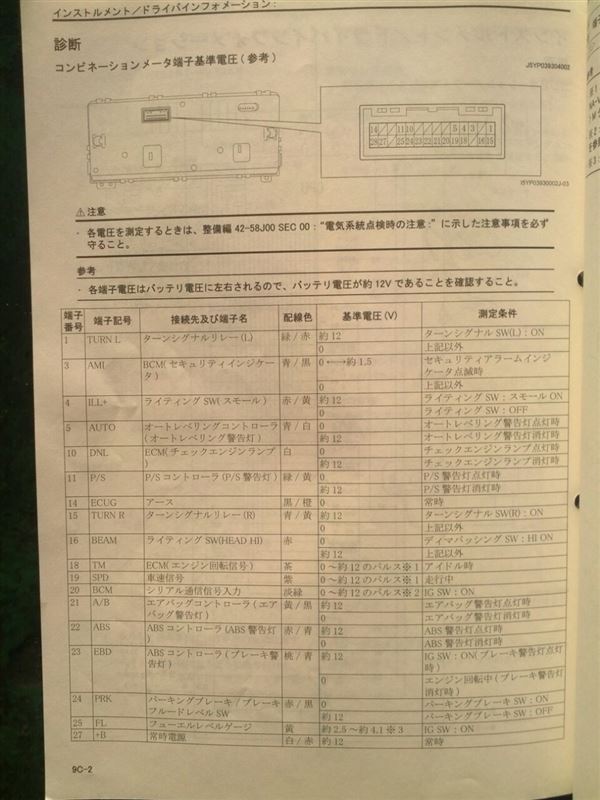 インストルメント／ドライバインフォメーション：
診断
コンビネーションメータ端子基準電圧 ( 参考 )
J5YP039304002
14 11 10 5 4 3 1
28 27 25 24 23 22 21 20 19 18 16 15
I5YP03930002J-03
⚠注意
・ 各電圧を測定するときは、整備編 42-58J00 SEC 00 : “電気系統点検時の注意：” に示した注意事項を必ず
守ること。
参考
・ 各端子電圧はバッテリ電圧に左右されるので、バッテリ電圧が約 12V であることを確認すること。
端子番号 端子記号 接続先及び端子名 配線色 基準電圧 (V) 測定条件
1 TURN L ターンシグナルリレー (L) 緑 / 赤 約 12 ターンシグナル SW(L) : ON
0 上記以外
3 AMI BCM( セキュリティインジケータ ) 青 / 黒 0 ←→約 1.5 セキュリティアラームインジケータ点滅時
0 上記以外
4 ILL+ ライティング SW( スモール ) 赤 / 黄 約 12 ライティング SW : スモール ON
0 ライティング SW : OFF
5 AUTO オートレベリングコントローラ ( オートレベリング警告灯 ) 青 / 白 0 オートレベリング警告灯点灯時
約 12 オートレベリング警告灯消灯時
10 DNL ECM( チェックエンジンランプ ) 白 0 チェックエンジンランプ点灯時
約 12 チェックエンジンランプ消灯時
11 P/S P/S コントローラ (P/S 警告灯 ) 緑 / 黄 0 P/S 警告灯点灯時
約 12 P/S 警告灯消灯時
14 ECUG アース 黒 / 橙 0 常時
15 TURN R ターンシグナルリレー (R) 青 / 黄 約 12 ターンシグナル SW(R) : ON
0 上記以外
16 BEAM ライティング SW(HEAD HI) 赤 0 ディマパッシング SW : HI ON
約 12 上記以外
18 TM ECM( エンジン回転信号 ) 茶 0 ～約 12 のパルス※ 1 アイドル時
19 SPD 車速信号 紫 0 ～約 12 のパルス※ 1 走行中
20 BCM シリアル通信信号入力 淡緑 0 ～約 12 のパルス※ 2 IG SW : ON
21 A/B エアバッグコントローラ ( エアバッグ警告灯 ) 黄 / 黒 約 12 エアバッグ警告灯点灯時
0 エアバッグ警告灯消灯時
22 ABS ABS コントローラ (ABS 警告灯 ) 赤 / 青 約 12 ABS 警告灯点灯時
0 ABS 警告灯消灯時
23 EBD ABS コントローラ ( ブレーキ警告灯 ) 桃 / 青 約 12 IG SW : ON( ブレーキ警告灯点灯時 )
0 エンジン回転中 ( ブレーキ警告灯消灯時 )
24 PRK パーキングブレーキ / ブレーキフルードレベル SW 赤 / 黒 0 パーキングブレーキ SW : ON
約 12 パーキングブレーキ SW : OFF
25 FL フューエルレベルゲージ 黄 約 2.5 ～約 4.1 ※ 3 IG SW : ON
27 +B 常時電源 白 / 赤 約 12 常時
9C-2